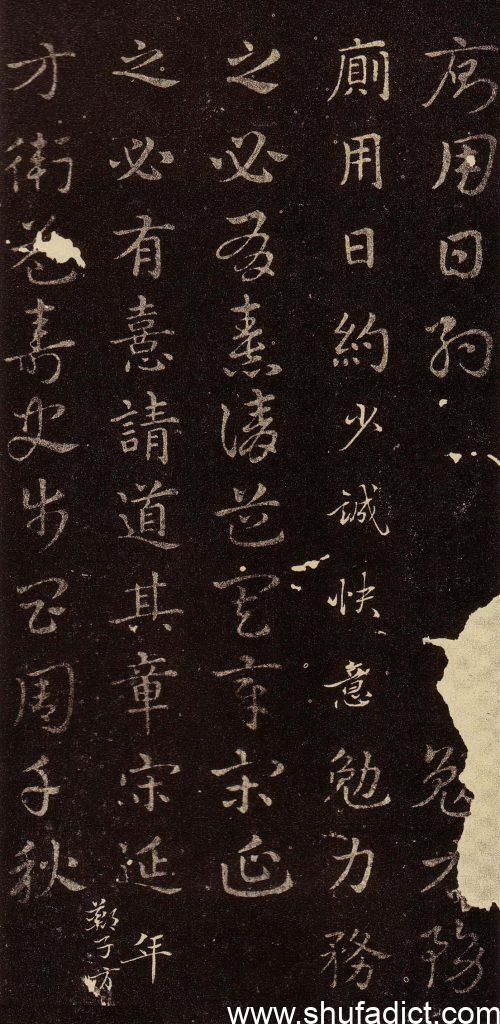 廁用日約勉力務
廁用日約少誠快意勉力務
之必有憙請道其章宋延
之必有憙請道其章宋延年
鄭子方
方衛益壽史步昌周千秋
www.shufadict.com